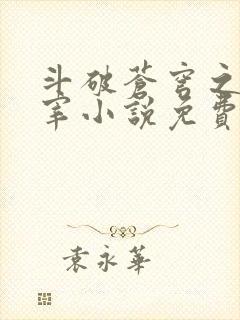 斗破蒼穹之
宰小說免費
袁永華